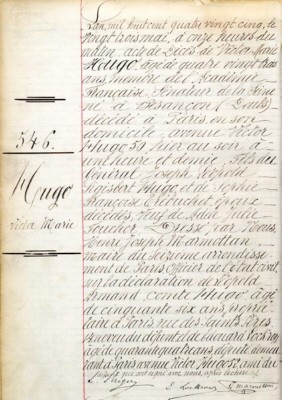 546.
Hugo
Victor Marie
L'an mil huit cent quatre vingt cinq, le
vingt trois mai, à onze heures du
matin acte de Décès de Victor Marie
Hugo, âgé de quatre vingt trois
ans, membre de l'Académie
Française, Sénateur de la Seine
né à Besançon (Doubs)
décédé à Paris en son
domicile avenue Victor
Hugo 50, hier au soir à
une heure et demie, fils de
Général Joseph Léopold
Sigisbert Hugo, et de Sophie
Françoise Trébuchet, époux
décédés, veuf de Adèle Julie
Foucher. Dressé par Nous,
Henri Joseph Marmottan
maire du Seizième arrondisse
ment de Paris, officier de l'état civil,
sur la déclaration de Léopold
Armand comte Hugo âgé
de cinquante six ans, proprié
taire à Paris rue des Saints Pères
neveu du défunt, et de Edouard Lockroy
âgé de quarante quatre ans, député demeu
rant à Paris avenue Victor Hugo ami du
qui ont signé avec nous, après lecture
L. Hugo
E. Lockroy
Marmottan